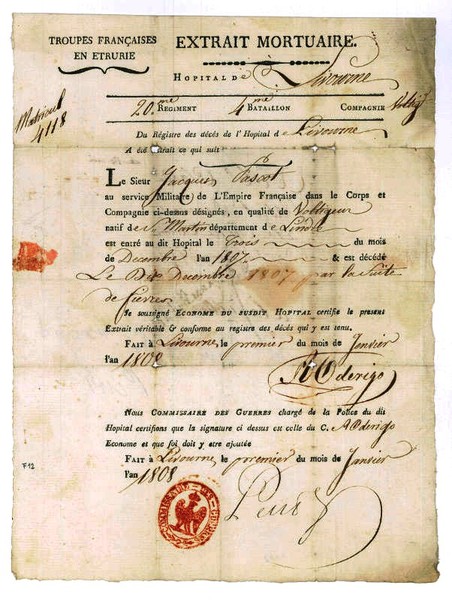 TROUPES FRANÇAISES
EN ETRURIE
EXTRAIT MORTUAIRE.
HOPITAL DE Livourne
Matricul
4118
20.me REGIMENT 4me BATAILLON COMPAGNIE Voltig
Du Régistre des décés de l'Hopital de Livourne
A été extrait ce qui suit
LE SIEUR Jacques Pascot
au service Militaire de L'Empire Française dans le Corps et
Compagnie ci-dessus désignés, en qualité de Voltigeur
natif de St. Martin département de L'indre
est entré au dit Hopital le Trois du mois
de Decembre l'an 1807 & est décédé
Le Dix Decembre 1807 par la Suite
de fievres
JE soussigné ECONOME DU SUSDIT HOPITAL certifie le present
Extrait véritable & conforme au registre des décés qui y est tenu.
FAIT à Livourne, le premier du mois de Janvier
l'an 1808
A Oderigo
NOUS COMMISSAIRE DES GUERRES chargé de la Police du dit
Hopital certifions que la signature ci dessus est celle du C. A Oderigo
Econome et que foi doit y être ajoutée
FAIT à Livourne, le premier du mois de Janvier
l'an 1808
F12